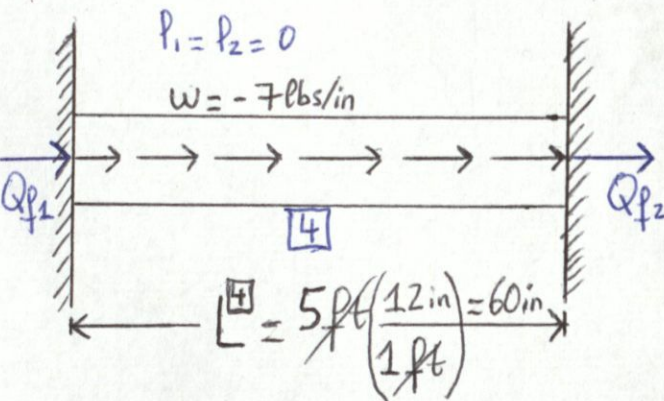 P₁ = P₂ = 0
w = - 7 lbs/in
Qf1
Qf2
4
L⁴ = 5 ft (12 in / 1 ft) = 60 in